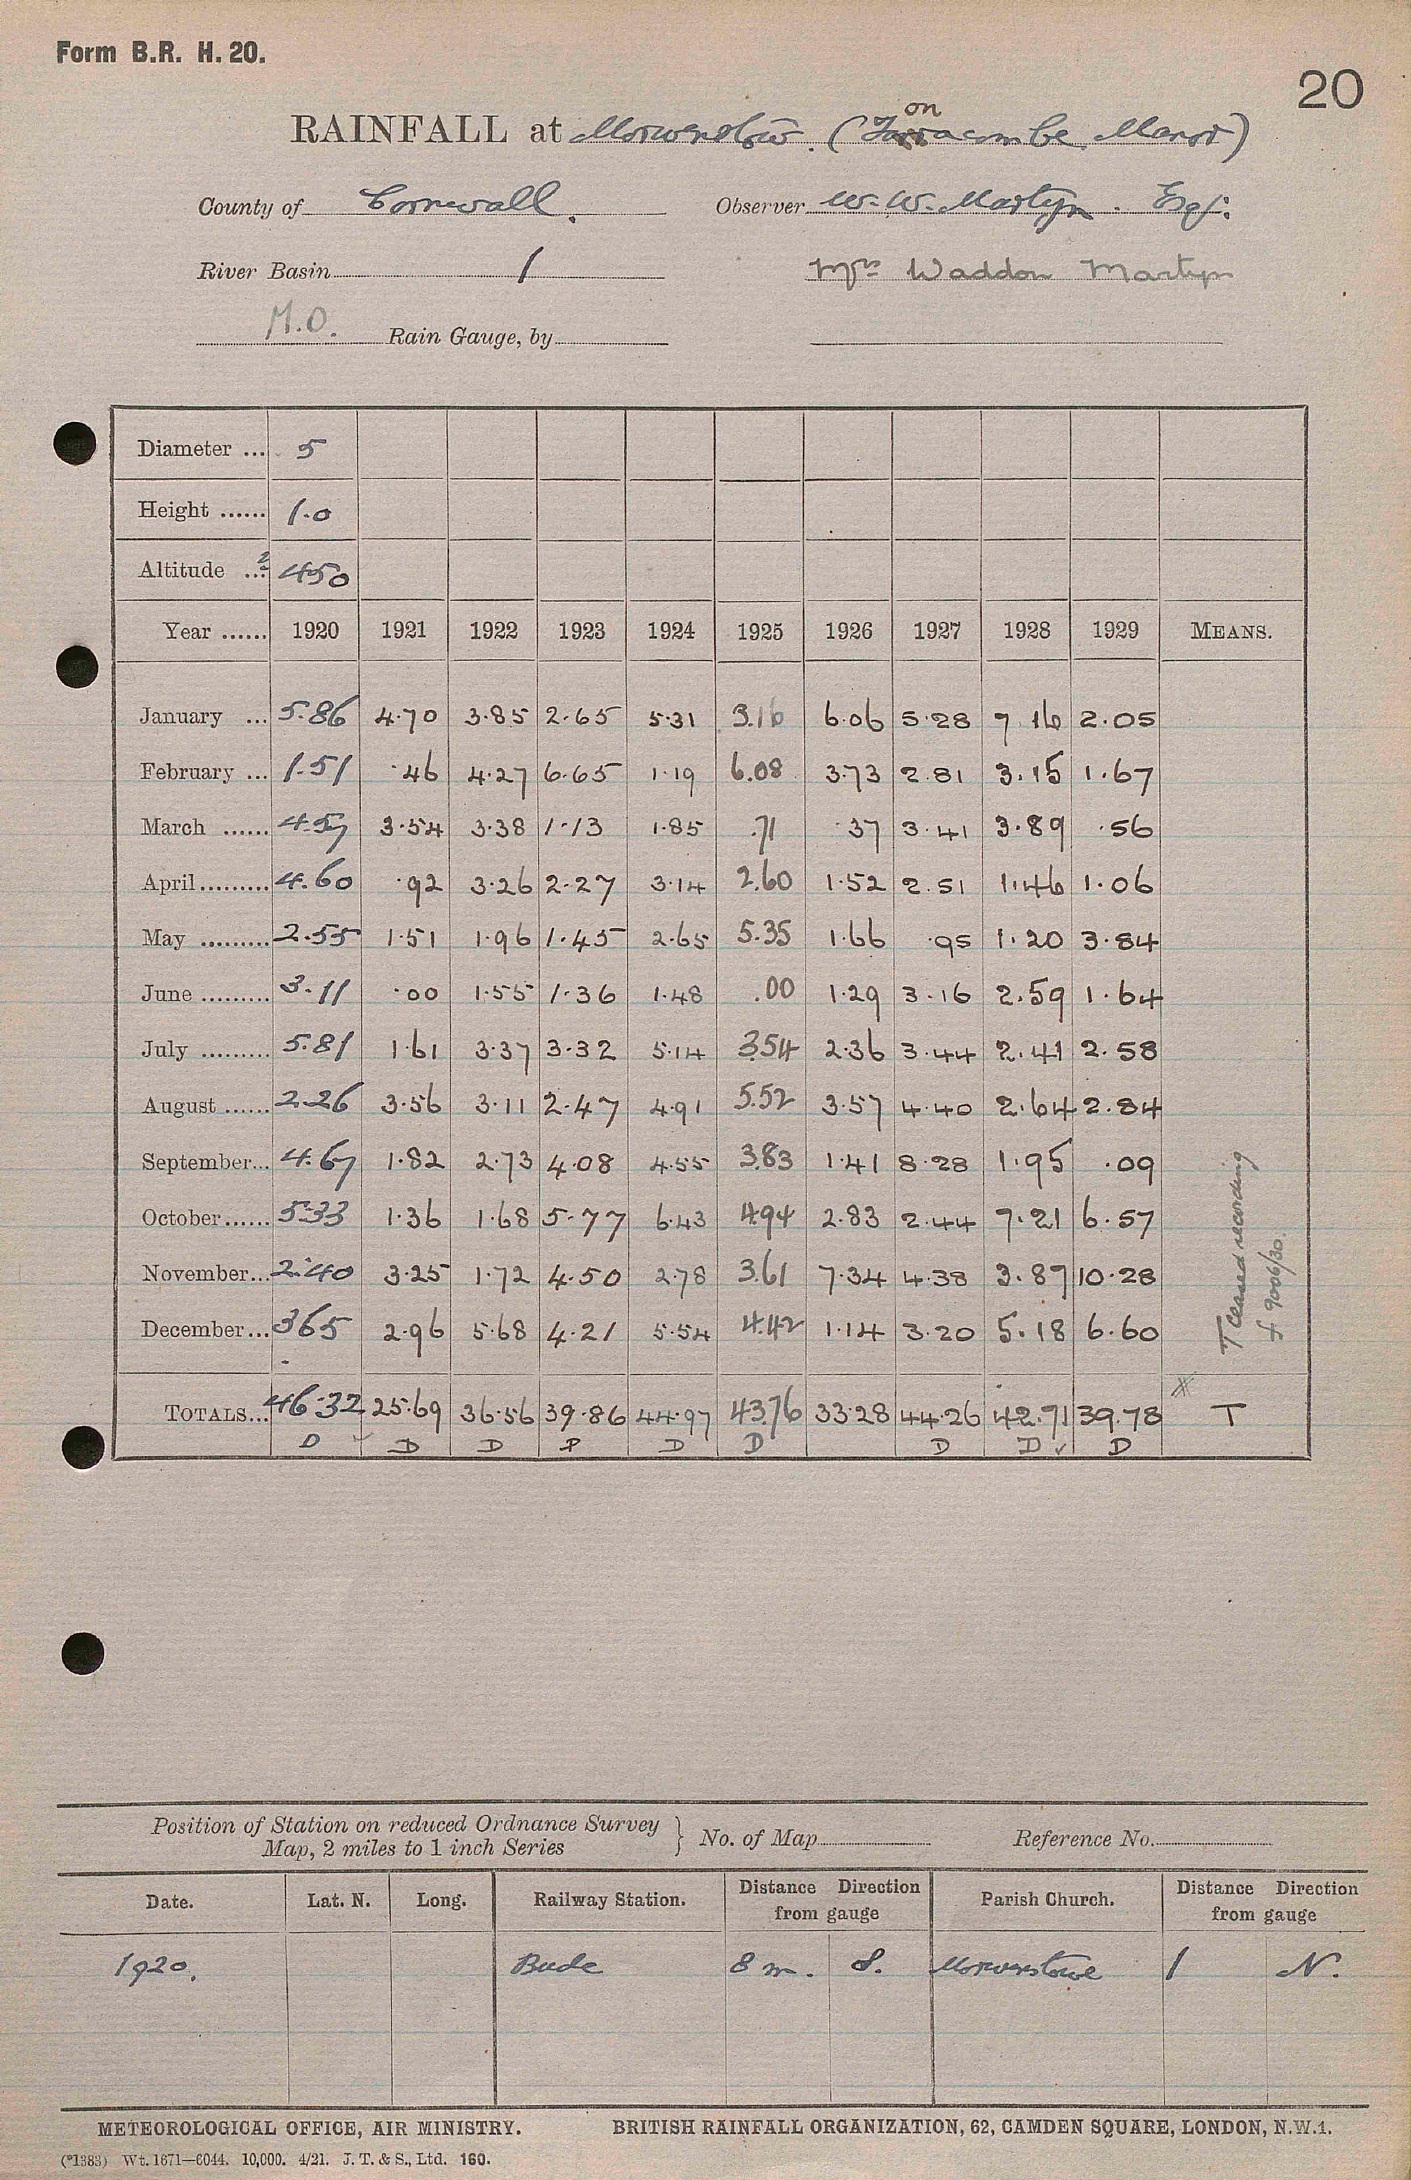 Form B.R. H. 20.
20
on
RAINFALL at Morwenstow. (Tonacombe Manor)
County of Cornwall. Observer W. W. Martyn. Esq.
River Basin 1 Mrs Waddon Martyn
M.O. Rain Gauge, by
Diameter ... 5
Height ...... 1.0
Altitude ... ? 450
Year ...... 1920 1921 1922 1923 1924 1925 1926 1927 1928 1929 MEANS.
January ... 5.86 4.70 3.85 2.65 5.31 3.16 6.06 5.28 7.16 2.05
February ... 1.51 .46 4.27 6.65 1.19 6.08 3.73 2.81 3.15 1.67
March ...... 4.57 3.54 3.38 1.13 1.85 .71 .37 3.41 3.89 .56
April ......... 4.60 .92 3.26 2.27 3.14 2.60 1.52 2.51 1.46 1.06
May ......... 2.55 1.51 1.96 1.45 2.65 5.35 1.66 .95 1.20 3.84
June ......... 3.11 .00 1.55 1.36 1.48 .00 1.29 3.16 2.59 1.64
July ......... 5.81 1.61 3.37 3.32 5.14 3.54 2.36 3.44 2.41 2.58
August ...... 2.26 3.56 3.11 2.47 4.91 5.52 3.57 4.40 2.64 2.84
September... 4.67 1.82 2.73 4.08 4.55 3.83 1.41 8.28 1.95 .09
October ...... 5.33 1.36 1.68 5.77 6.43 4.94 2.83 2.44 7.21 6.57
November... 2.40 3.25 1.72 4.50 2.78 3.61 7.34 4.38 3.87 10.28
December ... 3.65 2.96 5.68 4.21 5.54 4.42 1.14 3.20 5.18 6.60
T Ceased recording
f 9006/30.
TOTALS... 46.32 25.69 36.56 39.86 44.97 43.76 33.28 44.26 42.71 39.78 T
D D D P D D D D D
Position of Station on reduced Ordnance Survey
Map, 2 miles to 1 inch Series } No. of Map Reference No.
Date. Lat. N. Long. Railway Station. Distance Direction from gauge Parish Church. Distance Direction from gauge
1920. Bude 8 m. S. Morwenstowe 1 N.
METEOROLOGICAL OFFICE, AIR MINISTRY. BRITISH RAINFALL ORGANIZATION, 62, CAMDEN SQUARE, LONDON, N.W.1.
(*1383) Wt. 1671—6044. 10,000. 4/21. J. T. & S., Ltd. 160.